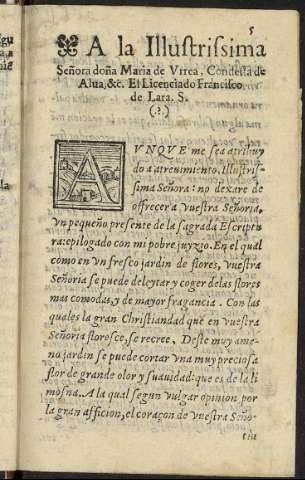 5
A la Illustrissima
Señora doña Maria de Vrrea. Condessa de
Alua, &c. El Licenciado Francisco
de Lara. S.
(?)
AVNQVE me sea atribuy
do a atreuimiento, Illustris-
sima Señora: no dexare de
offrecer a vuestra Señoria,
vn pequeño presente de la sagrada Escriptu
ra: epilogado con mi pobre juyzio. En el qual
como en vn fresco jardin de flores, vuestra
Señoria se puede deleytar y coger de las flores
mas comodas, y de mayor fragancia. Con las
quales la gran Christiandad que en vuestra
Señoria floresce, se recree. Deste muy ame-
no jardin se puede cortar vna muy preciosa
flor de grande olor y suauidad: que es de la li
mosna. A la qual segun vulgar opinion por
la gran afficion, el coraçon de vuestra Seño-